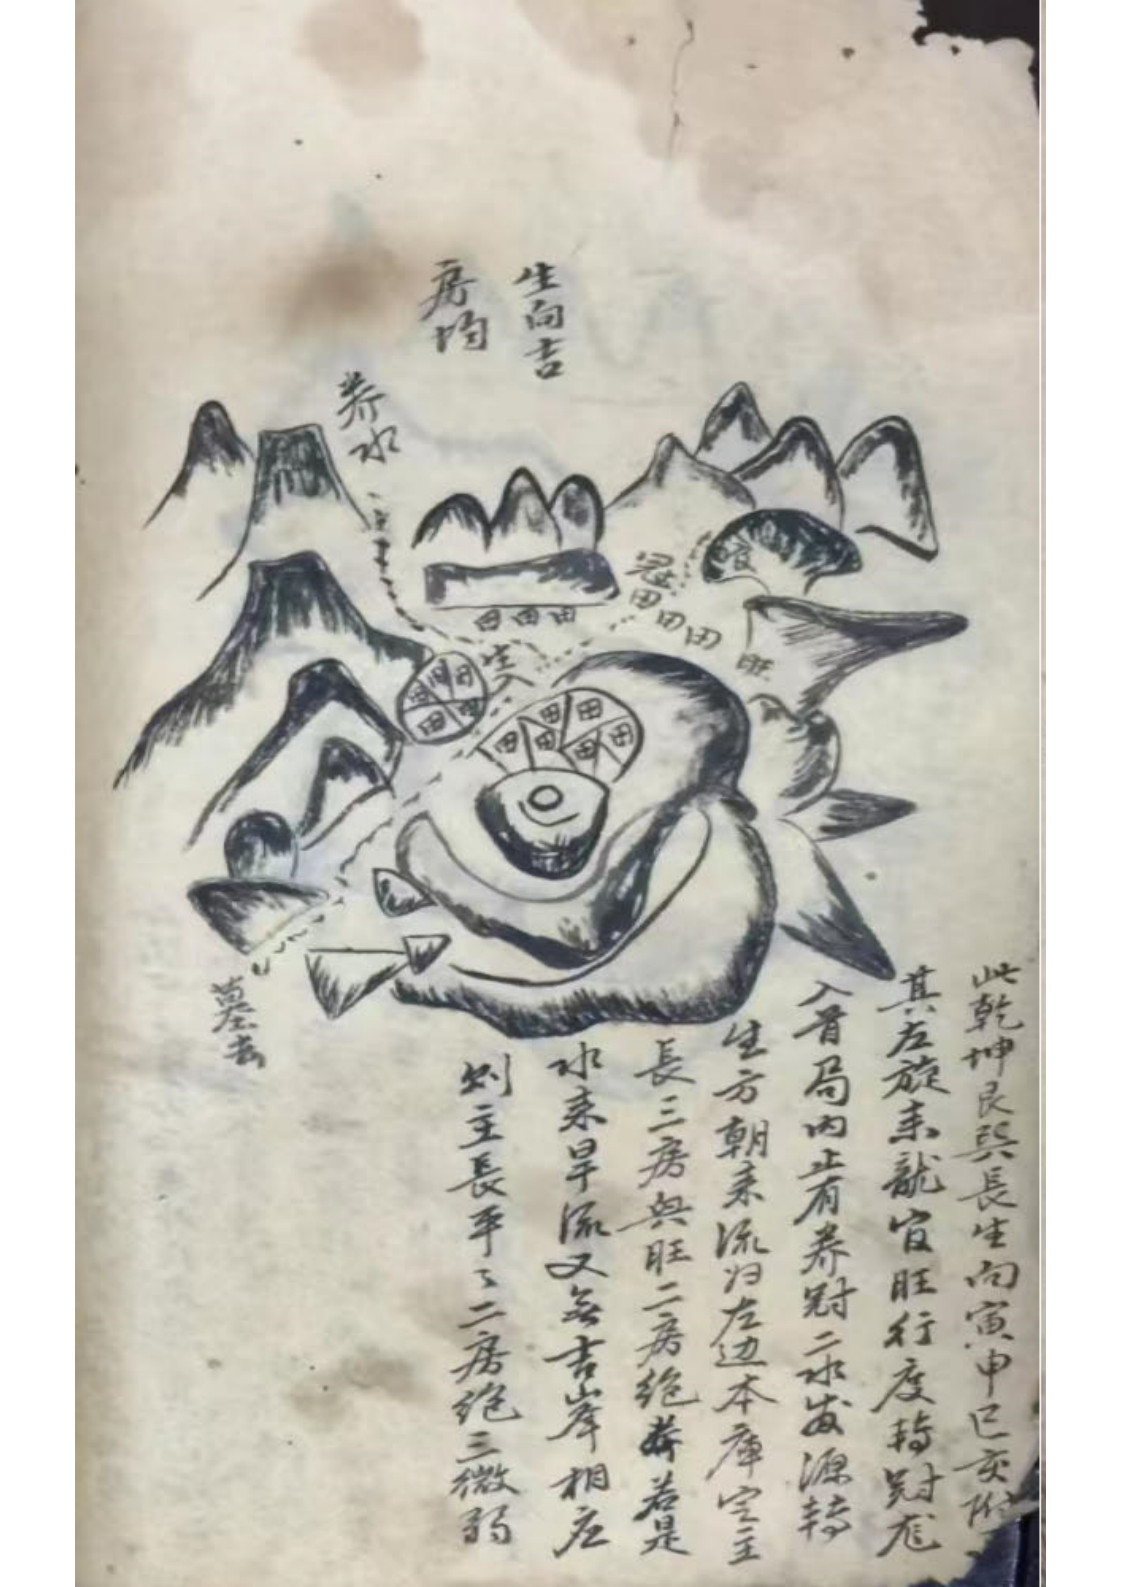 生向吉
房均
养水
冠
田田田
田田田
旺
生
田田田田田
田田田田田田
墓去
此乾坤艮巽長生向寅申巳亥附
其左旋来龍官旺行度轉
入首局内止有养二水发源轉
生方朝来流归左边本庫定主
長三房興旺二房绝若是
水来旱流又無吉峯相应
則主長平々二房绝三微弱